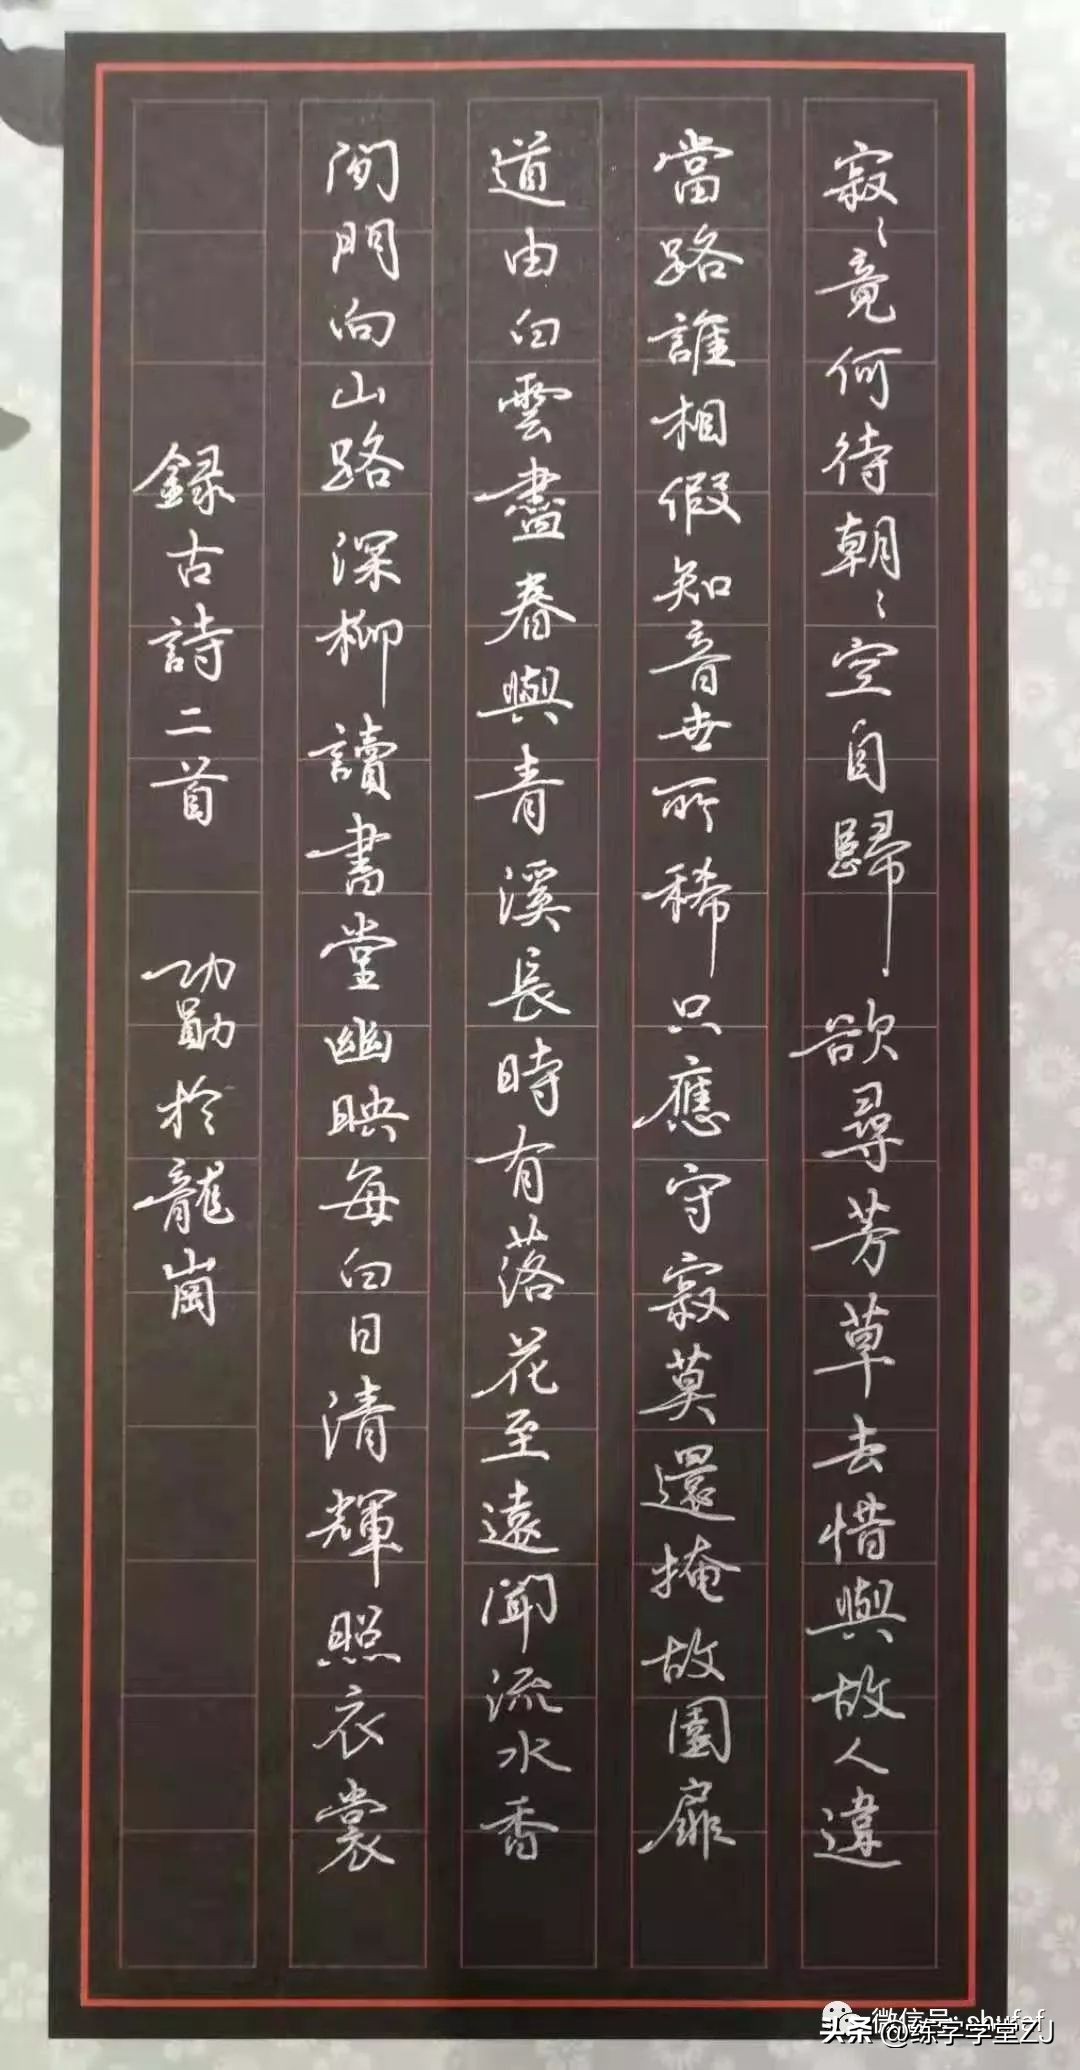 寂〻竟何待朝〻空自歸欲尋芳草去惜與故人違
當路誰相假知音世所稀只應守寂莫還掩故園扉
道由白雲盡春與青溪長時有落花至遠聞流水香
閒門向山路深柳讀書堂幽映每白日清輝照衣裳
錄古詩二首 功勛於龍崗
微信号:
头条 @练字学堂ZJ